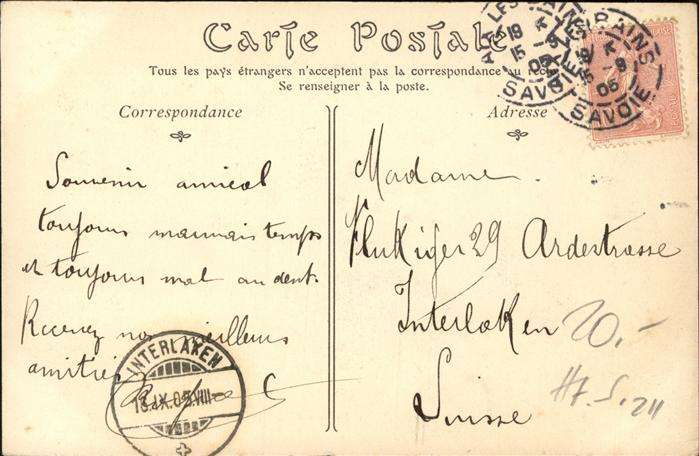 Carte Postale
Tous les pays étrangers n'acceptent pas la correspondance au
Se renseigner à la poste.
Correspondance
Souvenir amical
toujours mauvais temps
et toujours mal au dents
Recevez nos meilleurs
amitiés
Adresse
Madame
Flukiger 29 Ardestrasse
Interlaken
Suisse
20.-
LES BAINS
15 -9
05
SAVOIE
LES BAINS
15 -9
05
SAVOIE
INTERLAKEN